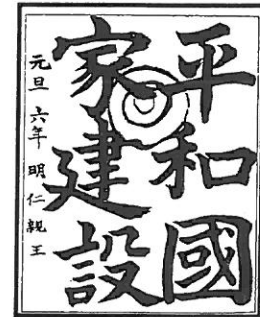 平和國
家建設
元旦 六年 明仁親王